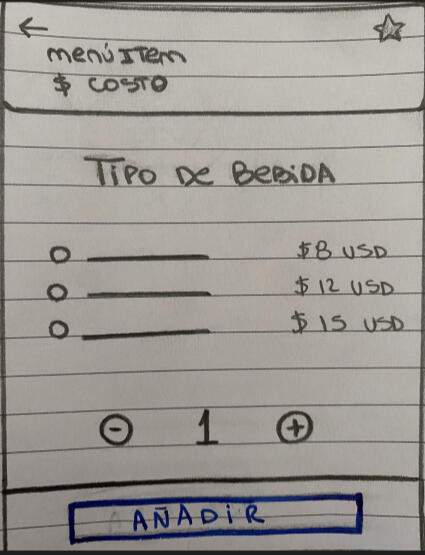 menú ITem
$ COSTO
TIPO DE BEBIDA
$8 USD
$12 USD
$15 USD
- 1 +
AÑADIR